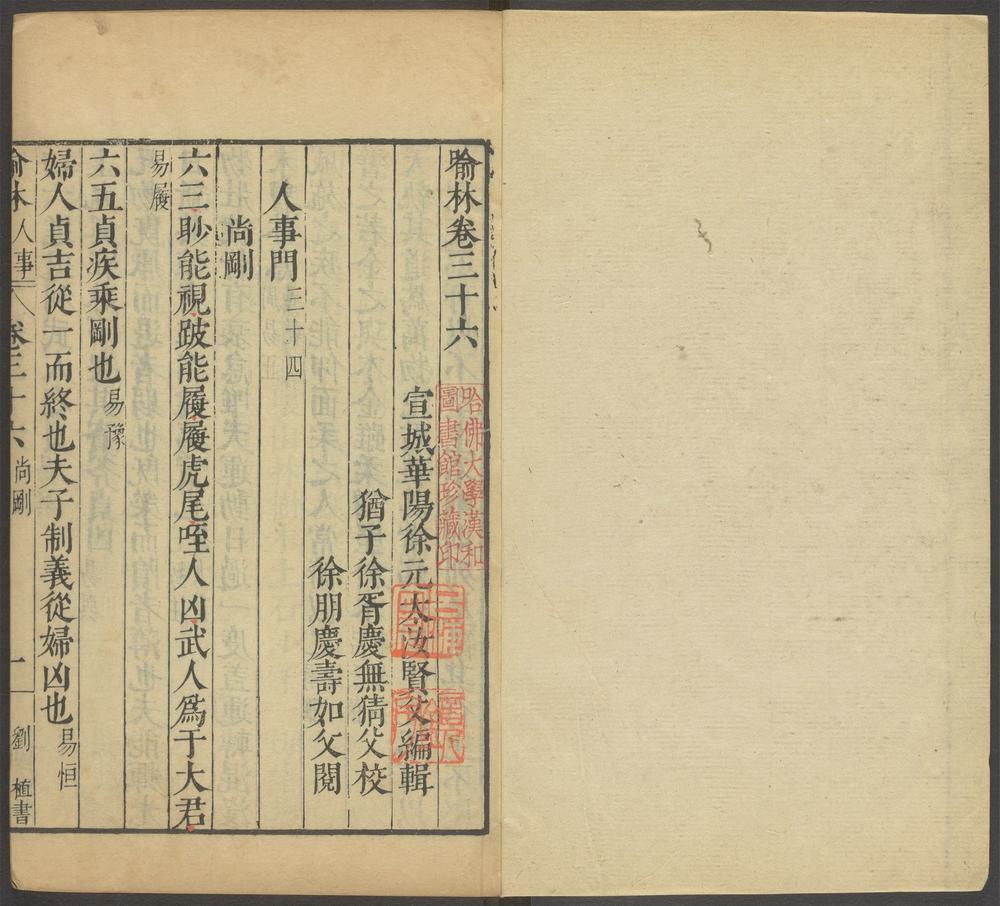 喻林卷三十六
哈佛大學漢和
圖書館珍藏印
宣城華陽徐元太汝賢父編輯
猶子徐胥慶無猜父校
徐朋慶壽如父閱
人事門三十四
尚剛
六三眇能視跛能履履虎尾咥人凶武人爲于大君
易履
六五貞疾乘剛也易豫
婦人貞吉從一而終也夫子制義從婦凶也易恒
喻林人事八卷三十六尚剛 一 劉植書